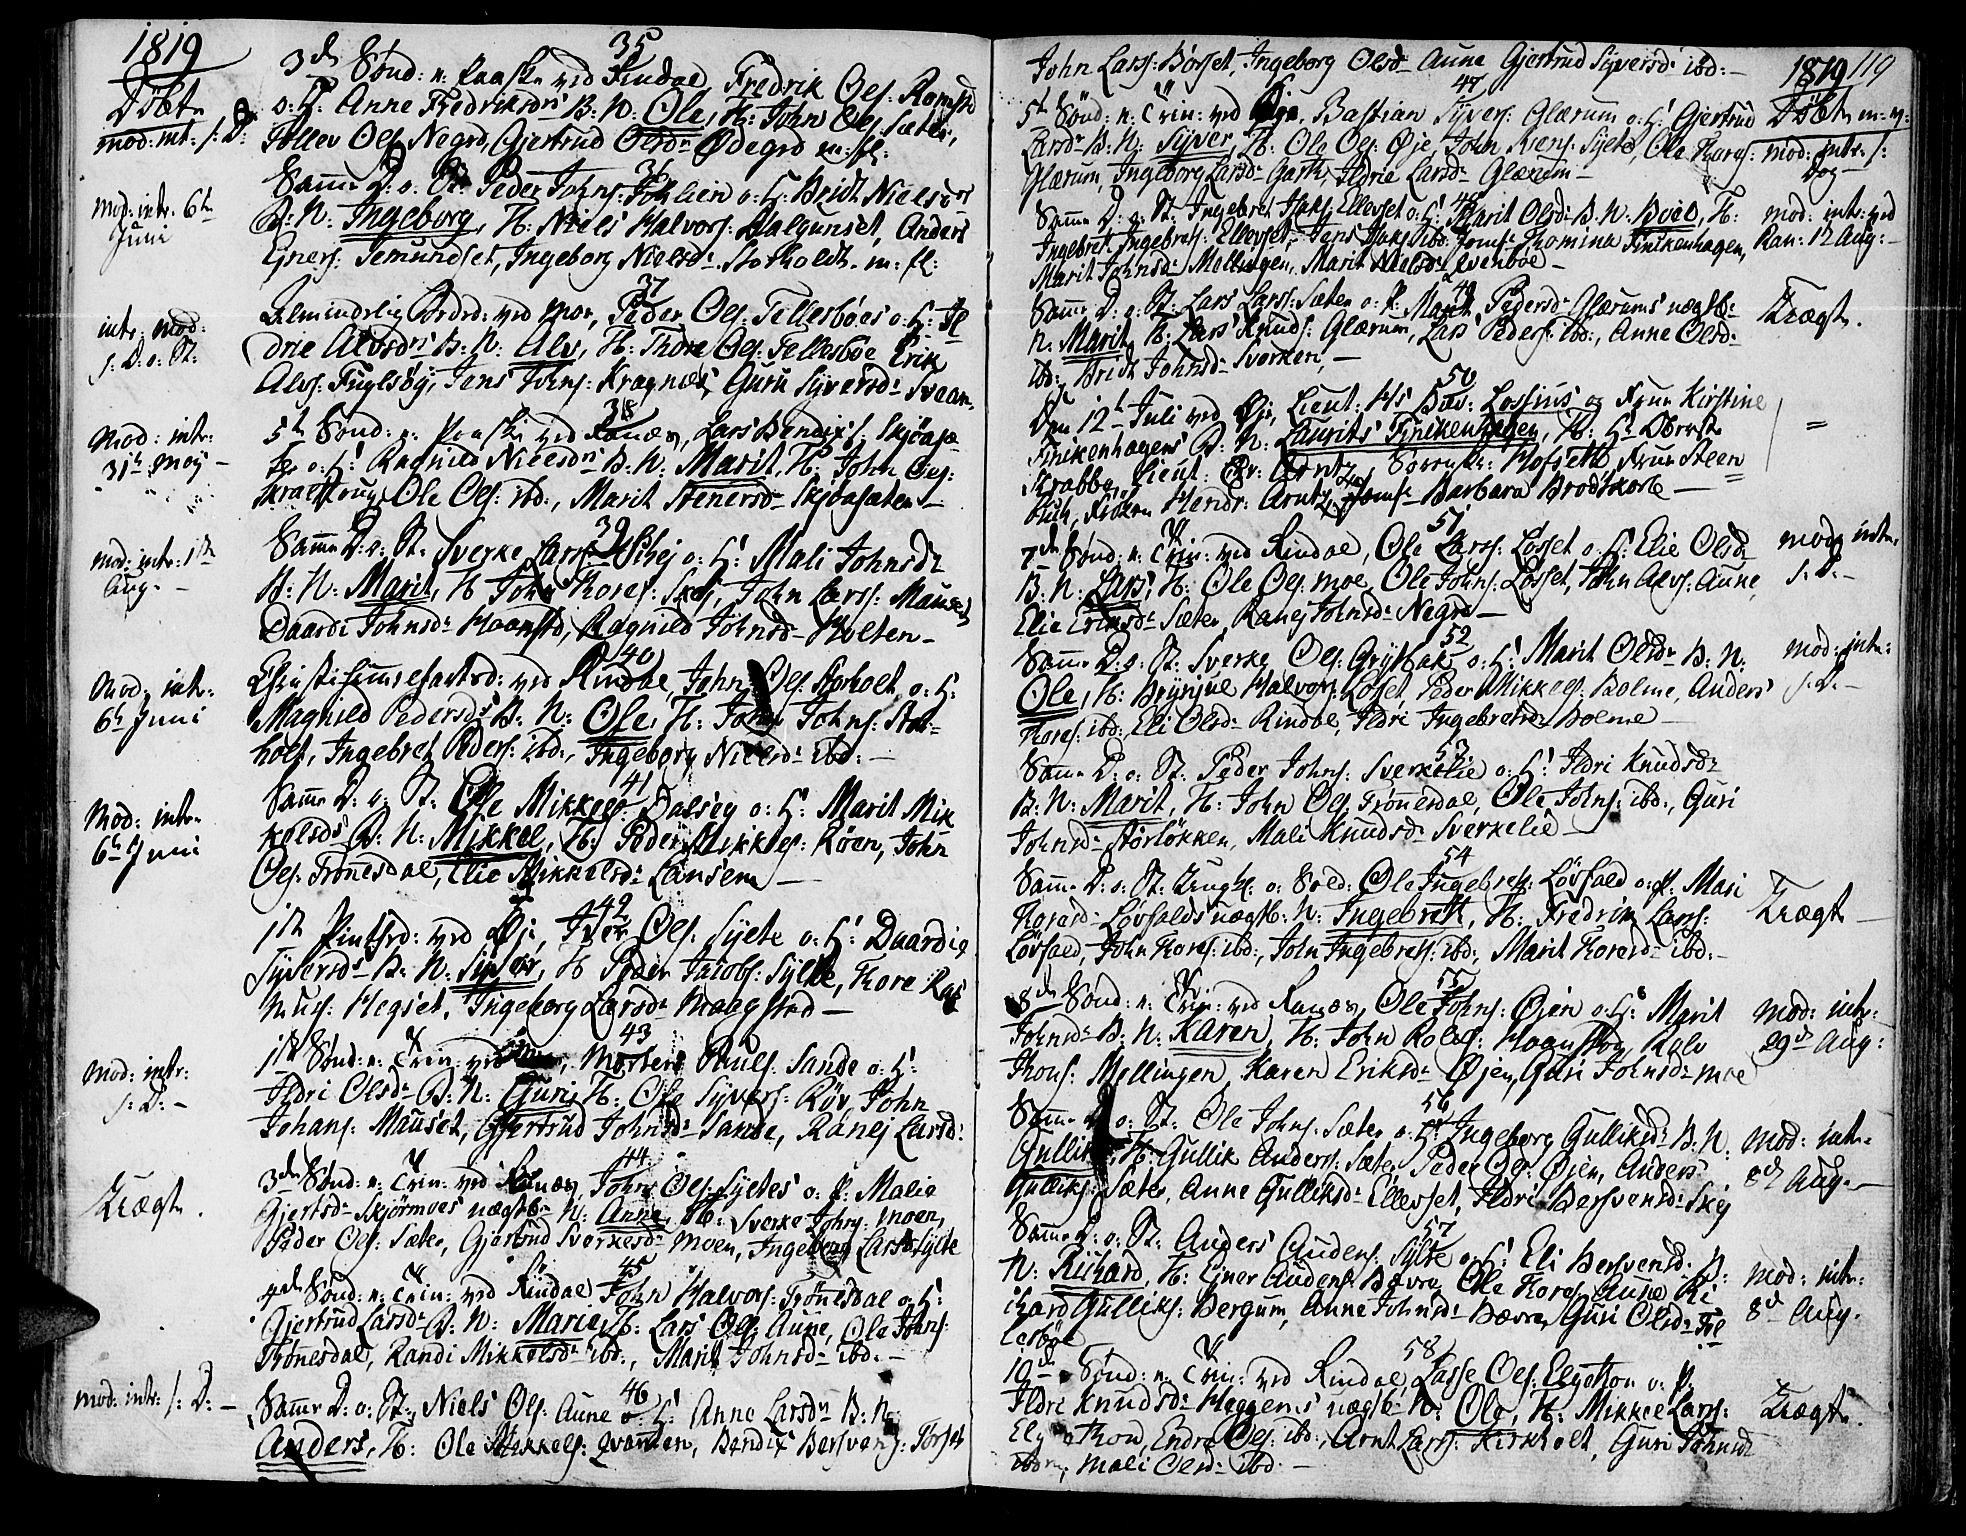 1819
Döbte
mod: int: s: D:
35
3de Sönd: n: Paaske ved Rindal, Fredrik Oles: Romstd
o: H: Anne Fredriksdrs B: N: Ole, F: John Oles: Sæter,
Tollev Oles: Negrd, Gjertrud Olsdr Ødegrd m: fl:
36
Samme D: o: St: Peder Johns: o: H: Bridt Nielsdrs
B: N: Ingeborg, F: Niels Halvors: Halgunset, Anders
Ejners: Temundset, Ingeborg Nielsd: Storholdt m: fl:
mod: intr: 6te
Juni
37
Almindelig Bededd: ved Moe, Peder Oles: Tellesböes o: H: Il
drie Alvsdrs B: N: Alv, F: Thore Oles: Tellesböe, Erik
Alvs: Fuglsöy, Jens Johns: Kragnes, Guru Syversd: Svean
intr: mod:
s: D: o: St:
38
5te Sönd: n: Paaske ved Ranæs, Lars Bendixs: Skjöasæ
ter o: H: Ragnild Nielsdrs B: N: Marit, F: John Oles:
Ole Oles: ibd:, Marit Stenersd: Skjöasæter
Mod: intr:
31te Maj
39
Samme D: o: St: Sverke Larss: Skej o: H: Mali Johnsdr
B: N: Marit, F: John Tores: Skej, John Larss: Mauset
Daardi Johnsdr Haanstd, Ragnild Johnsd: Holten
mod: intr: 1te
Aug:
40
Christi Himmelfartsd: ved Rindal, John Oles: Storholt o: H:
Magnild Pedersdrs B: N: Ole, F: John Johns: Stor-
holt, Ingebret Peders: ibd:, Ingeborg Nielsd: ibd:
Mod: intr:
6te Juni
41
Samme D: o: St: Ole Mikkels: Dalseg o: H: Marit Mik
kelsdrs B: N: Mikkel, F: Peder Mikkels: Röen, John
Oles: Trönesdal, Elie Mikkelsd: Landsem
Mod: intr:
6te Juni
42
1te Pintsed: ved Øje, Iver Oles: Sylte o: H: Daardie
Syversdrs B: N: Syver, F: Peder Jacobs: Sylte, Tore Ras
mus: Hegset, Ingeborg Larsdr Maagstad
43
1te Sönd: n: Trin: ved Moe, Morten Pouls: Sande o: H:
Ildri Olsdr B: N: Guri, F: Ole Syvers: Röv, John
Johans: Mauset, Gjertrud Johnsd: Sande, Ranej Larsd:
Mod: intr:
s: D:
44
3de Sönd: n: Trin: ved Ranæs, John Oles: Syltes o: P: Malie
Gjertsdr Skjörmoes uægtb: N: Anne, F: Sverke Johns: Moen,
Peder Oles: Sæter, Gjertrud Sverkesd: Moen, Ingeborg Larsd: Sylte
Uægte.
45
4de Sönd: n: Trin: ved Rindal John Halvors: Trönesdal o: H:
Gjertrud Larsdr B: N: Marie, F: Lars Oles: Aune, Ole Johns:
Trönesdal, Randi Mikkelsdr ibd:, Marit Johnsd: ibd:
46
Samme D: o: St: Niels Oles: Aune o: H: Anne Larsdrs B: N:
Anders, F: Ole Mikkels: Qvanden, Bendix Bersvens: Torset
mod: intr: s: D:
John Larss: Börset, Ingeborg Olsd: Aune Gjertrud Syversd: ibd:
1819 119
Döbte m: v:
47
5te Sönd: n: Trin: ved Øje, Bastian Syvers: Glærum o: H: Gjertrud
Larsdr B: N: Syver, F: Ole Oles: Øje, John Siens: Sylte, Ole Tores:
Glærum, Ingeborg Larsd: Garte, Ildrie Larsd: Glærum
mod: intr: s:
Dag
48
Samme D: o: St: Ingebret Jaks: Ellevset o: H: Marit Olsd: B: N: Boel, F:
Ingebret Ingebrets: Ellevset, Jens Jaks: ibd: Jomf: Thomina Finkenhagen,
Marit Johnsd: Mellingen, Marit Nielsd: Evenboe
mod: intr: ved
Ran: 12 Aug:
49
Samme D: o: St: Lars Larss: Sæter o: P: Marit Pedersd: Glærums uægtb:
N: Marit, F: Lars Knuds: Glærum, Lars Peders: ibd:, Anne Olsd:
ibd: Bridt Johnsd: Sverken,
Uægte.
50
Den 12te Juli ved Øje, Lieut: Hs Bav: Lossius og Frue Kirstine
Finkenhagens B: N: Laurits Finkenhagen, F: Hr Oberst
Krabbe, Lieut: Chr: Arntz, Sorenskr: Hofsett, Frue Steen
buch, Fröken Hendr: Arntz, Jomfr Barbara Brodtkorb
=
51
7de Sönd: n: Trin: ved Rindal, Ole Larss: Losset o: H: Elie Olsd
B: N: Lars, F: Ole Oles: Moe, Ole Johns: Losset, John Alvs: Aune,
Elie Eriksd: Sæter, Ranej Johnsd: Negrd
mod: intr:
s: D:
52
Samme D: o: St: Sverke Oles: Grytbak o: H: Marit Olsdr B: N:
Ole, F: Brynjul Halvors: Loset, Peder Mikkels: Bolme, Anders
Tores: ibd: Eli Olsd: Rindal, Ildri Ingebretsd: Bolme
mod: intr:
s: D:
53
Samme D: o: St: Peder Johns: Sverkelie o: H: Ildri Knudsdr
B: N: Marit, F: John Oles: Trönesdal, Ole Johns: ibd:, Guri
Johnsd: Storlökken, Mali Knudsd: Sverkelie
54
Samme D: o: St: Ungk: o: Sold: Ole Ingebrets: Lövfald o: P: Mari
Torasd: Lövfalds uægtb: N: Ingebret, F: Fredrik Larss:
Lövfald, John Tores: ibd:, John Ingebrets: ibd:, Marit Toresd: ibd:
Uægte
55
8de Sönd: n: Trin: ved Ranæs, Ole Johns: Øjen o: H: Marit
Johnsdr B: N: Karen, F: John Rolvs: Haanstad, Rolv
Thores: Mellingen, Karen Eriksd: Øjen, Guri Johnsd: Moe
mod: intr:
29de Aug:
56
Samme D: o: St: Ole Johns: Sæter o: H: Ingeborg Gulliksdr B: N:
Gullik, F: Gullik Anders: Sæter, Peder Oles: Øjen, Anders
Gulliks: Sæter, Anne Gulliksd: Ellevset, Ildri Bersvensd: Skej
mod: intr:
8de Aug:
57
Samme D: o: St: Anders Audens: Sylte o: H: Eli Bersvensd: B:
N: Richard, F: Ejner Audens: Bævre, Ole Tores: Aune, Ri
chard Gulliks: Bergum, Anne Johnsd: Bævre, Guri Olsd: Tel
lesböe
mod: intr:
8de Aug:
58
10de Sönd: n: Trin: ved Rindal, Lasse Oles: Elgethon o: P:
Ildri Knudsdr Heggems uægtb: N: Ole, F: Mikkel Larss:
Elgethon, Endre Oles: ibd:, Arnt Larss: Kirkholt, Guri Johnsd:
ibdm, Mali Olsd: ibd:
Uægte.